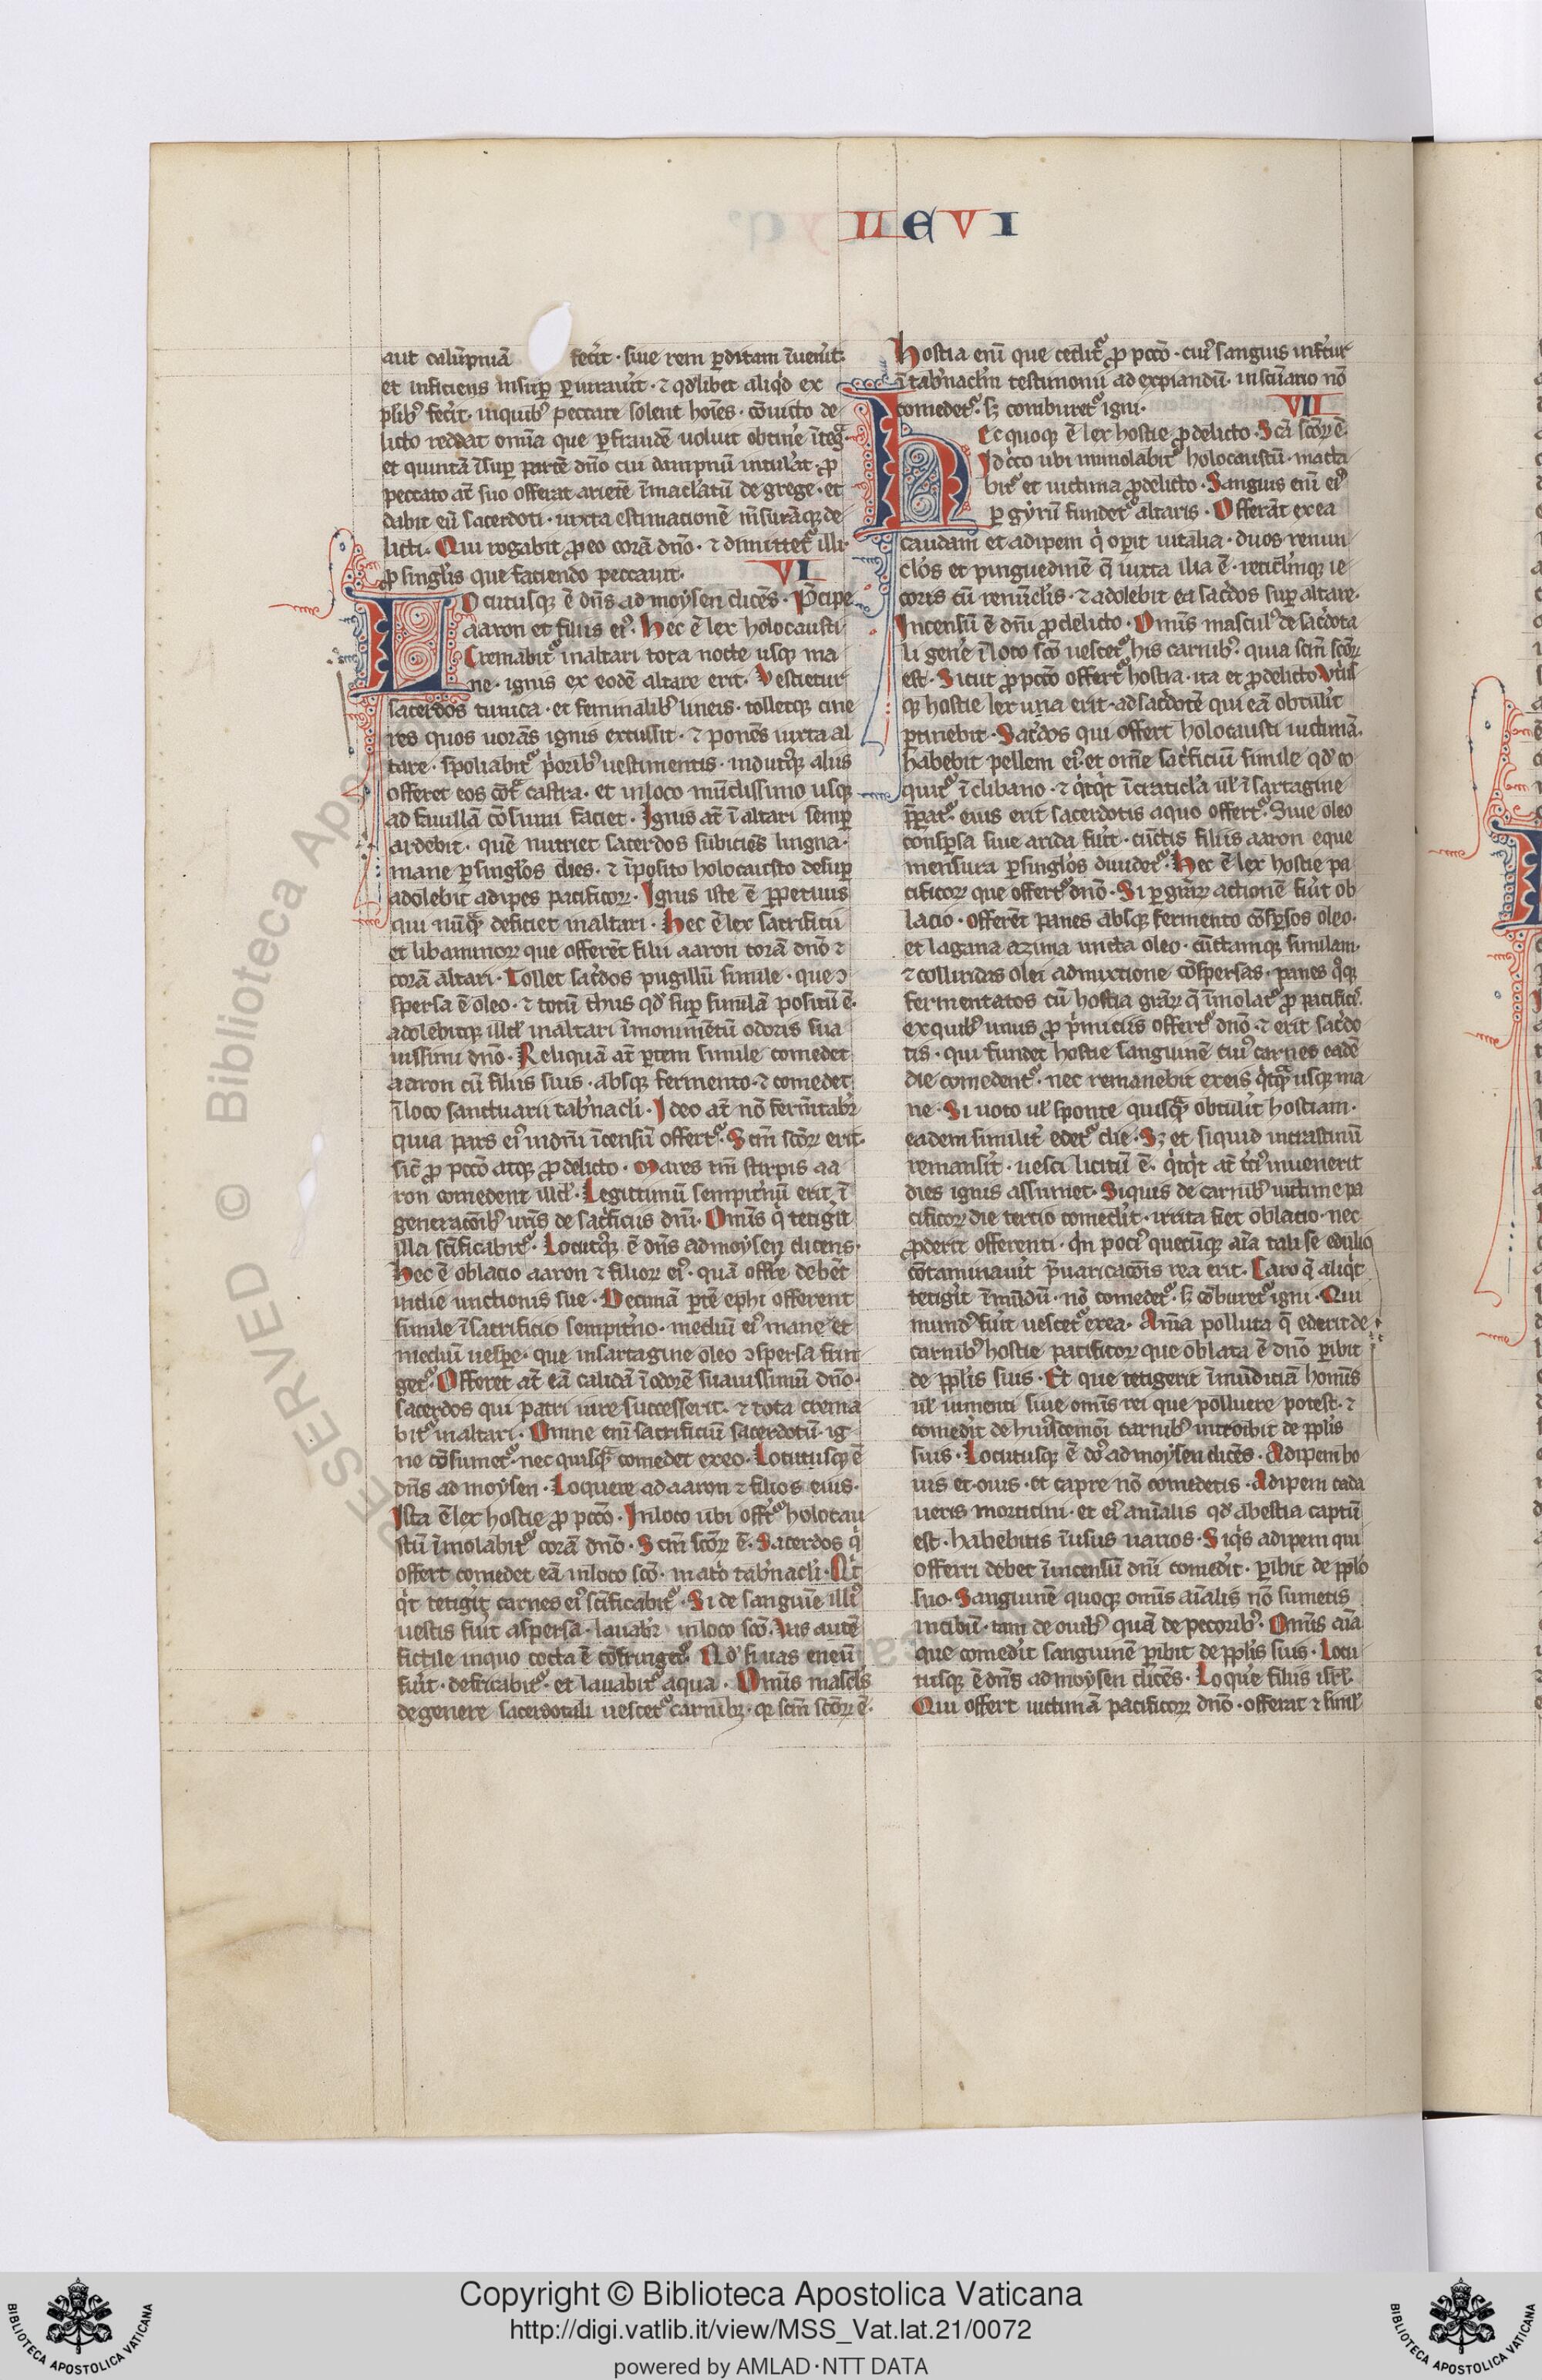 LEVI
aut calũpniã fecĩt · siue rem ꝑditam ĩuenit·
et inficiens insuꝑ ꝑiurauit · ⁊ qd̾libet aliqͥd ex
plib᷒ fecĩt · inquib᷒ peccare solent hoĩes · cõuicto de
licto reddat omĩa que ꝑ fraudẽ uoluit obtinẽ ĩtegͣ·
et quintã ĩsuꝑ partẽ dño cui dampnũ intulat · ꝓ
peccato aũt suo offerat arietẽ ĩmaclatũ de grege · et
dabit eũ sacerdoti · iuxta estimationẽ mẽsurãqꝫ de
licti · Qui rogabit ꝓ eo corã dño · ⁊ dimittet᷑ illi·
ꝓ singlis que faciendo peccauit· VI
LOcutusqꝫ ẽ dñs ad moysen dicẽs · Pͣcipe
aaron et filiis ei᷒ · Hec ẽ lex holocausti
Cremabit᷑ inaltari tota nocte usqꝫ ma
ne · ignis ex eodẽ altare erit · Vestietur
sacerdos tunica · et feminalib᷒ lineis · tolletqꝫ cine
res quos uorãs ignis exussit · ⁊ ponẽs iuxta al
tare · spoliabit᷑ pͥorib᷒ uestimentis · indut᷒qꝫ aliis
offeret eos extͣ castra · et inloco mũdissimo usqꝫ
ad fauillã cõsumi faciet · Ignis aũt ĩ altari semꝑ
ardebit · quẽ nutriet sacerdos subiciẽs lingna·
mane ꝑ singlos dies · ⁊ ĩposito holocausto desuꝑ
adolebit adipes pacificoꝝ · Ignis iste ẽ ꝑpetuus
qui nũqͣ deficiet inaltari · Hec ẽ lex sacrificii
et libaminoꝝ que offerẽt filii aaron corã dño ⁊
corã altari · Tollet sac̾dos pugillũ simile · que ↄ
spersa ẽ oleo · ⁊ totũ thus qd̾ suꝑ similã positũ ẽ·
adolebitqꝫ illd̾ inaltari ĩmonimẽtũ odoris sua
uissimi dño · Reliquã aũt ꝑtem simile comedet
aaron cũ filiis suis · absqꝫ fermento · ⁊ comedet
ĩ loco sanctuarii tab̾nacli · Ideo aũt nõ fermẽtabit᷑
quia pars ei᷒ indñi ĩcensũ offert᷑ · Scm̃ scõꝝ erit·
sic̃ ꝓ pccõ atqꝫ ꝓ delicto · Mares tm̃ stirpis aa
ron comedent illd̾ · Legitimũ sempit̾nũ erit ĩ
generacõib᷒ ur̃is de sac̾ficiis dñi · Om̃is qͥ tetigit̾
illa scĩficabit᷑ · Locut᷒qꝫ ẽ dñs ad moysen dicens·
Hec ẽ oblacio aaron ⁊ filioꝝ ei᷒ · quã offre debẽt
indie unctionis sue · Decimã ꝑtẽ ephi offerent
simile ĩ sacrificio sempit̾no · mediũ ei᷒ mane et
mediũ uesꝑe · que insartagine oleo ↄspersa frin
get᷑ · Offeret aũt eã calidã ĩ odorẽ suauissimũ dño·
sacerdos qui patri iure successerit · ⁊ tota crema
bit᷑ inaltari · Omne eĩ sacrificiũ sacerdotũ · ig
ne cõsumet᷑ · nec quisqͣ comedet exeo · Locutusqꝫ ẽ
dñs ad moysen · Loquere ad aaron ⁊ filios eius·
Ista ẽ lex hostie ꝓ pccõ · Inloco ubi offert᷑ holocau
stũ ĩmolabit᷑ corã dño · Scm̃ scõꝝ ẽ · Sacerdos qͥ
offert comedet eã inloco scõ · inatͥo tab̾nacli · Qͥc
qͥt tetigit̾ carnes ei᷒ scĩficabit᷑ · Si de sanguĩe illi᷒
uestis fuit̾ aspersa · lauabit᷑ inloco scõ · Vas autẽ
fictile inquo cocta ẽ cõfringet᷑ · Qd̾ si uas eneũ
fuit̾ · defricabit᷑ · et lauabit᷑ aqua · Om̃is mascls
de genere sacerdotali uescet᷑ carnibꝫ · qꝛ scm̃ scõꝝ ẽ·
Hostia eñi que cedit᷑ ꝓ pccõ · cui᷒ sanguis infert᷑
ĩ tab̾naclm̃ testimonii ad expiandũ · inscũario nõ
comedet᷑ · sꝫ comburet᷑ igni· VII
HEc quoqꝫ ẽ lex hostie ꝓ delicto · Scã scõꝝ ẽ·
Idc̾co ubi immolabit᷑ holocaustũ · macta
bit᷑ et uictima ꝓ delicto · Sanguis eñi ei᷒
ꝑ gyrũ fundet᷑ altaris · Offerãt exea
caudam et adipem qͥ oꝑit uitalia · duos renun
clos et pinguedinẽ q̃ iuxta ilia ẽ · reticlm̃qꝫ ie
coris cũ renũclis · ⁊ adolebit ea sac̾dos suꝑ altare·
Incensũ ẽ dñi ꝓ delicto · Om̃is mascul᷒ de sac̾dota
li gen̾e ĩ loco scõ uescet᷑ his carnib᷒ · quia scm̃ scõꝝ
est · Sicut ꝓ pccõ offert᷑ hostia · ita et ꝓ delicto · Vtͥus
qꝫ hostie lex una erit · ad sac̾dotẽ qui eã obtulit̾
ꝑtinebit · Sac̾dos qui offert holocausti uictimã·
habebit pellem ei᷒ · et om̃e sac̾ficiũ simile qd̾ co
quit᷑ ĩ clibano · ⁊ qͥcqͥt ĩ craticla ul̾ ĩ sartagine
p̃parat᷑ · eius erit sacerdotis aquo offert᷑ · Siue oleo
consꝑsa siue arida fuit̾ · cũctis filiis aaron eque
mensura ꝑ singlos diuidet᷑ · Hec ẽ lex hostie pa
cificoꝝ que offert᷑ dño · Si ꝑ gͣaꝝ actionẽ fuit̾ ob
lacio · offerẽt panes absqꝫ fermento cõsꝑsos oleo·
et lagana azima uncta oleo · cũctamqꝫ similam·
⁊ colliridas olei admixtione cõspersas · panes qͦqꝫ
fermentatos cũ hostia gͣaꝝ q̃ ĩmolat᷑ ꝓ pacificis·
exquib᷒ unus ꝓ pͥmiciis offert᷑ dño · ⁊ erit sac̾do
tis · qui fundet hostie sanguinẽ cui᷒ carnes eadẽ
die comedent᷑ · nec remanebit exeis qͥcqͣ usqꝫ ma
ne · Si uoto ul̾ sponte quisqͣ obtulit̾ hostiam·
eadem similit̾ edet᷑ die · Sꝫ et siquid incrastinũ
remansit̾ · uesci licitũ ẽ · qͥcqͥt aũt tͥci᷒ inuenerit
dies ignis assumet · Siquis de carnib᷒ uictime pa
cificoꝝ die tercio comedit̾ · irrita fiet oblacio · nec
ꝓderit offerenti · qͥn poci᷒ quecũqꝫ aĩa tali se edulio
cõtaminauit̾ p̃uaricacõis rea erit · Caro q̃ aliqͥt
tetigit̾ ĩmũdũ · nõ comedet᷑ · sꝫ cõburet᷑ igni · Qui
mund᷒ fuit̾ uescet᷑ exea · Aĩa polluta q̃ ederit de
carnib᷒ hostie pacificoꝝ que oblata ẽ dño ꝑibit
de ppl̾is suis · Et que tetigerit ĩmũdiciã homĩs
ul̾ iumenti siue om̃is rei que polluere potest · ⁊
comedit̾ de huiꝰcemõi carnib᷒ interibit de ppl̾is
suis · Locutusqꝫ ẽ dñs ad moysen dicẽs · Adipem bo
uis et ouis · et capre nõ comedetis · Adipem cada
ueris morticini · et ei᷒ anĩalis qd̾ abestia captũ
est · habebitis ĩ usus uarios · Siqͥs adipem qui
offerri debet ĩ incensũ dñi comedit̾ · ꝑibit de ppl̾o
suo · Sanguinẽ quoqꝫ om̃is aĩalis nõ sumetis
incibũ · tam de auib᷒ quã de pecorib᷒ · Om̃is aĩa
que comedit̾ sanguinẽ ꝑibit de ppl̾is suis · Locu
tusqꝫ ẽ dñs ad moysen dicẽs · Loqu̾e filiis isrl̾·
Qui offert uictimã pacificoꝝ dño · offerat ⁊ simil̾
© Biblioteca Ap
Copyright © Biblioteca Apostolica Vaticana
http://digi.vatlib.it/view/MSS_Vat.lat.21/0072
powered by AMLAD·NTT DATA
BIBLIOTECA APOSTOLICA VATICANA
BIBLIOTECA APOSTOLICA VATICANA